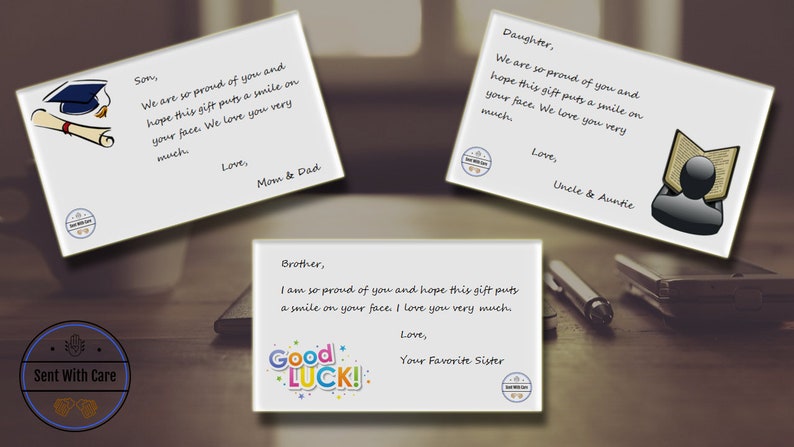 Son,
We are so proud of you and
hope this gift puts a smile on
your face. We love you very
much.
Love,
Mom & Dad
Sent With Care
Daughter,
We are so proud of you and
hope this gift puts a smile on
your face. We love you very
much.
Love,
Uncle & Auntie
Sent With Care
Brother,
I am so proud of you and hope this gift puts
a smile on your face. I love you very much.
Love,
Your Favorite Sister
Good
LUCK!
Sent With Care
Sent With Care